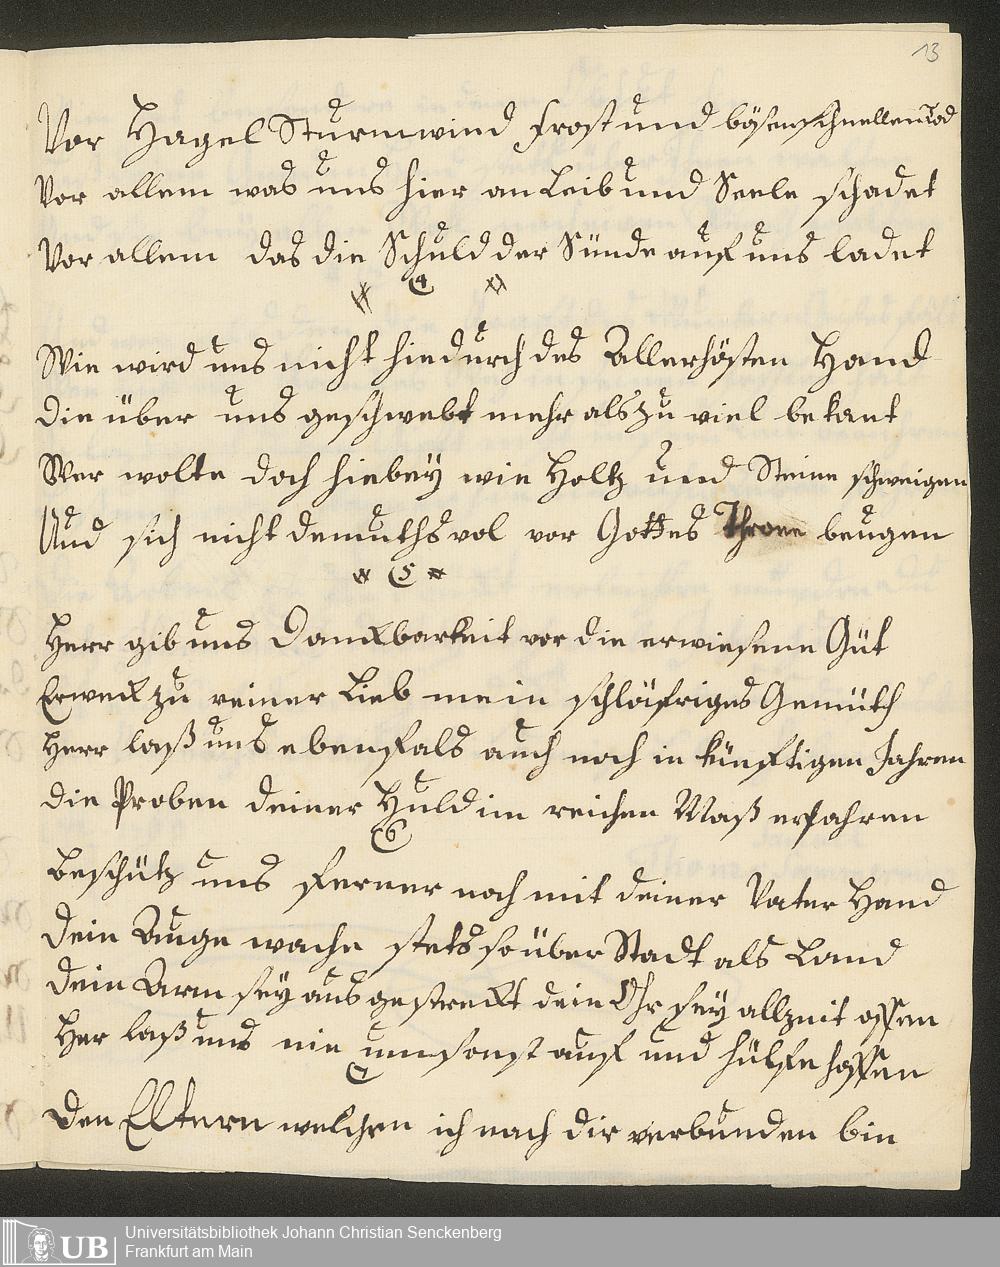 13
Vor Hagel Sturmwind Frost und bösen schnellen Tod
Vor allem was uns hier an Leib und Seele schadet
Vor allem das die Schuld der Sünde auf uns ladet
4
Wie wird uns nicht hiedurch des Allerhösten Hand
die über uns geschwebt mehr als zu viel bekant
Wer wolte doch hiebey wie Holtz und Steine schweigen
Und sich nicht demuths vol vor Gottes Throne beugen
5
Herr gib uns Danckbarkeit vor die erwiesene Güt
Erweck zu reiner Lieb mein schläfriges Gemüth
Herr laß uns ebenfals auch noch in künftigen Jahren
die Proben deiner Huld im reichen Maß erfahren
6
Beschütz uns ferner noch mit deiner Vater Hand
dein Auge wache stets so über Stadt als Land
dein Arm sey ausgestreckt dein Ohr sey allzeit offen
Her laß uns nie umsonst auf und hülfe hoffen
7
den Eltern welchen ich nach dir verbunden bin
UB
Universitätsbibliothek Johann Christian Senckenberg
Frankfurt am Main